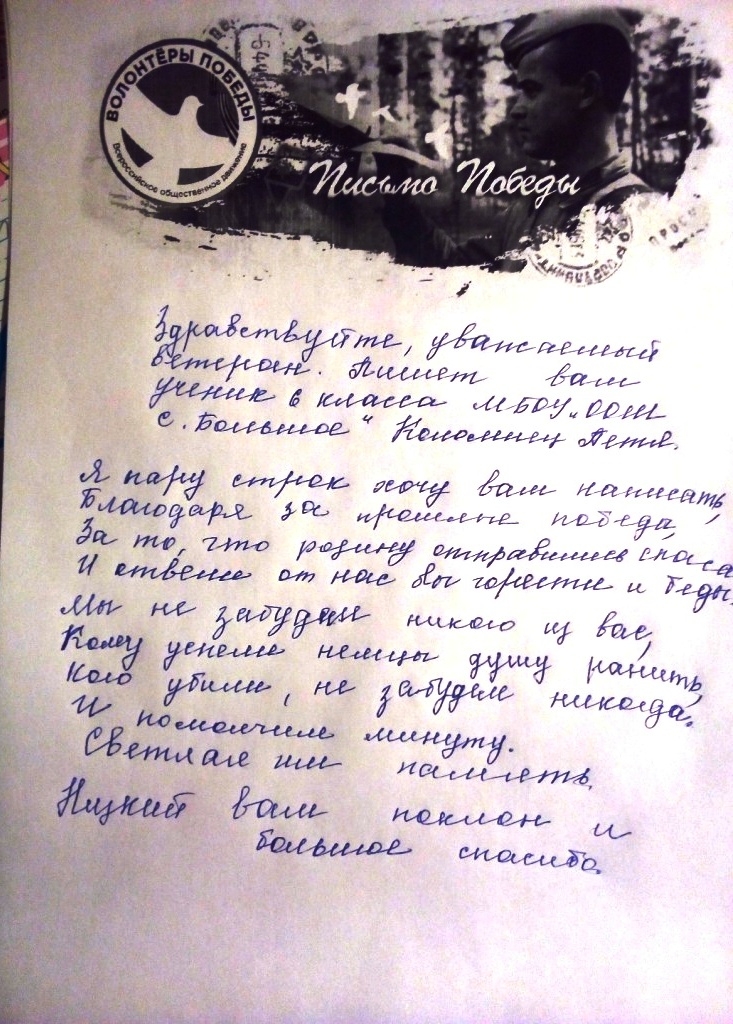 ВОЛОНТЁРЫ ПОБЕДЫ
Всероссийское общественное движение
Письмо Победы
Здравствуйте, уважаемый
ветеран. Пишет вам
ученик 6 класса МБОУ „ООШ
с. Большое" Коломиец Петя.
Я пару строк хочу вам написать,
Благодаря за прошлые победа,
За то, что родину отправились спаса
И отвели от нас вы горести и беды.
Мы не забудем никого из вас,
Кому успели немцы душу ранить,
Кого убили, не забудем никогда.
И помолчим минуту.
Светлая им память.
Низкий вам поклон и
большое спасибо.